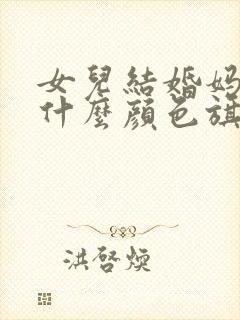 女兒結婚媽
什麼顏色旗
洪啓煐